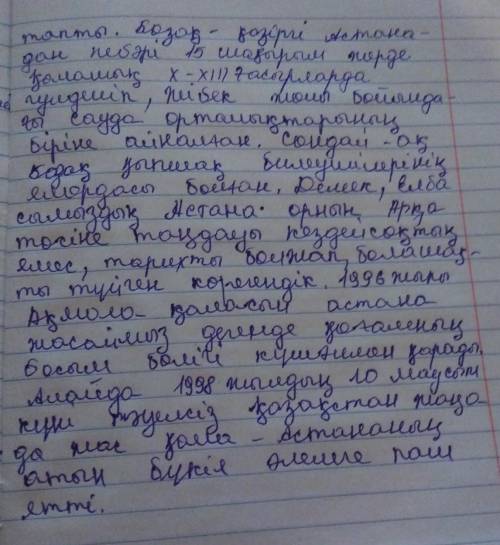 тапты. Бозақ - қазіргі Астана-
дан небәрі 15 шақырым жерде
Қаланың X-XIII ғасырларда
гүлденіп, Жібек жолы бойында-
ғы сауда орталықтарының
біріне айналған. Сондай-ақ
Бозақ қыпшақ билеушілерінің
ямордасы болған. Демек, Елба
сымыздың Астана орнын Арқа
төсіне таңдауы кездейсоқтық
емес, тарихты болжап, болашақ-
ты түйген көрегендік. 1996 жылы
Ақмола қаласын астана
жасаймыз дегенде қоғамның
басым бөлігі күмәнмен қарады.
Алайда 1998 жылдың 10 маусым
күні тәуелсіз Қазақстан жаңа
да жас қала - Астананың
атын бүкіл әлемге паш
етті.